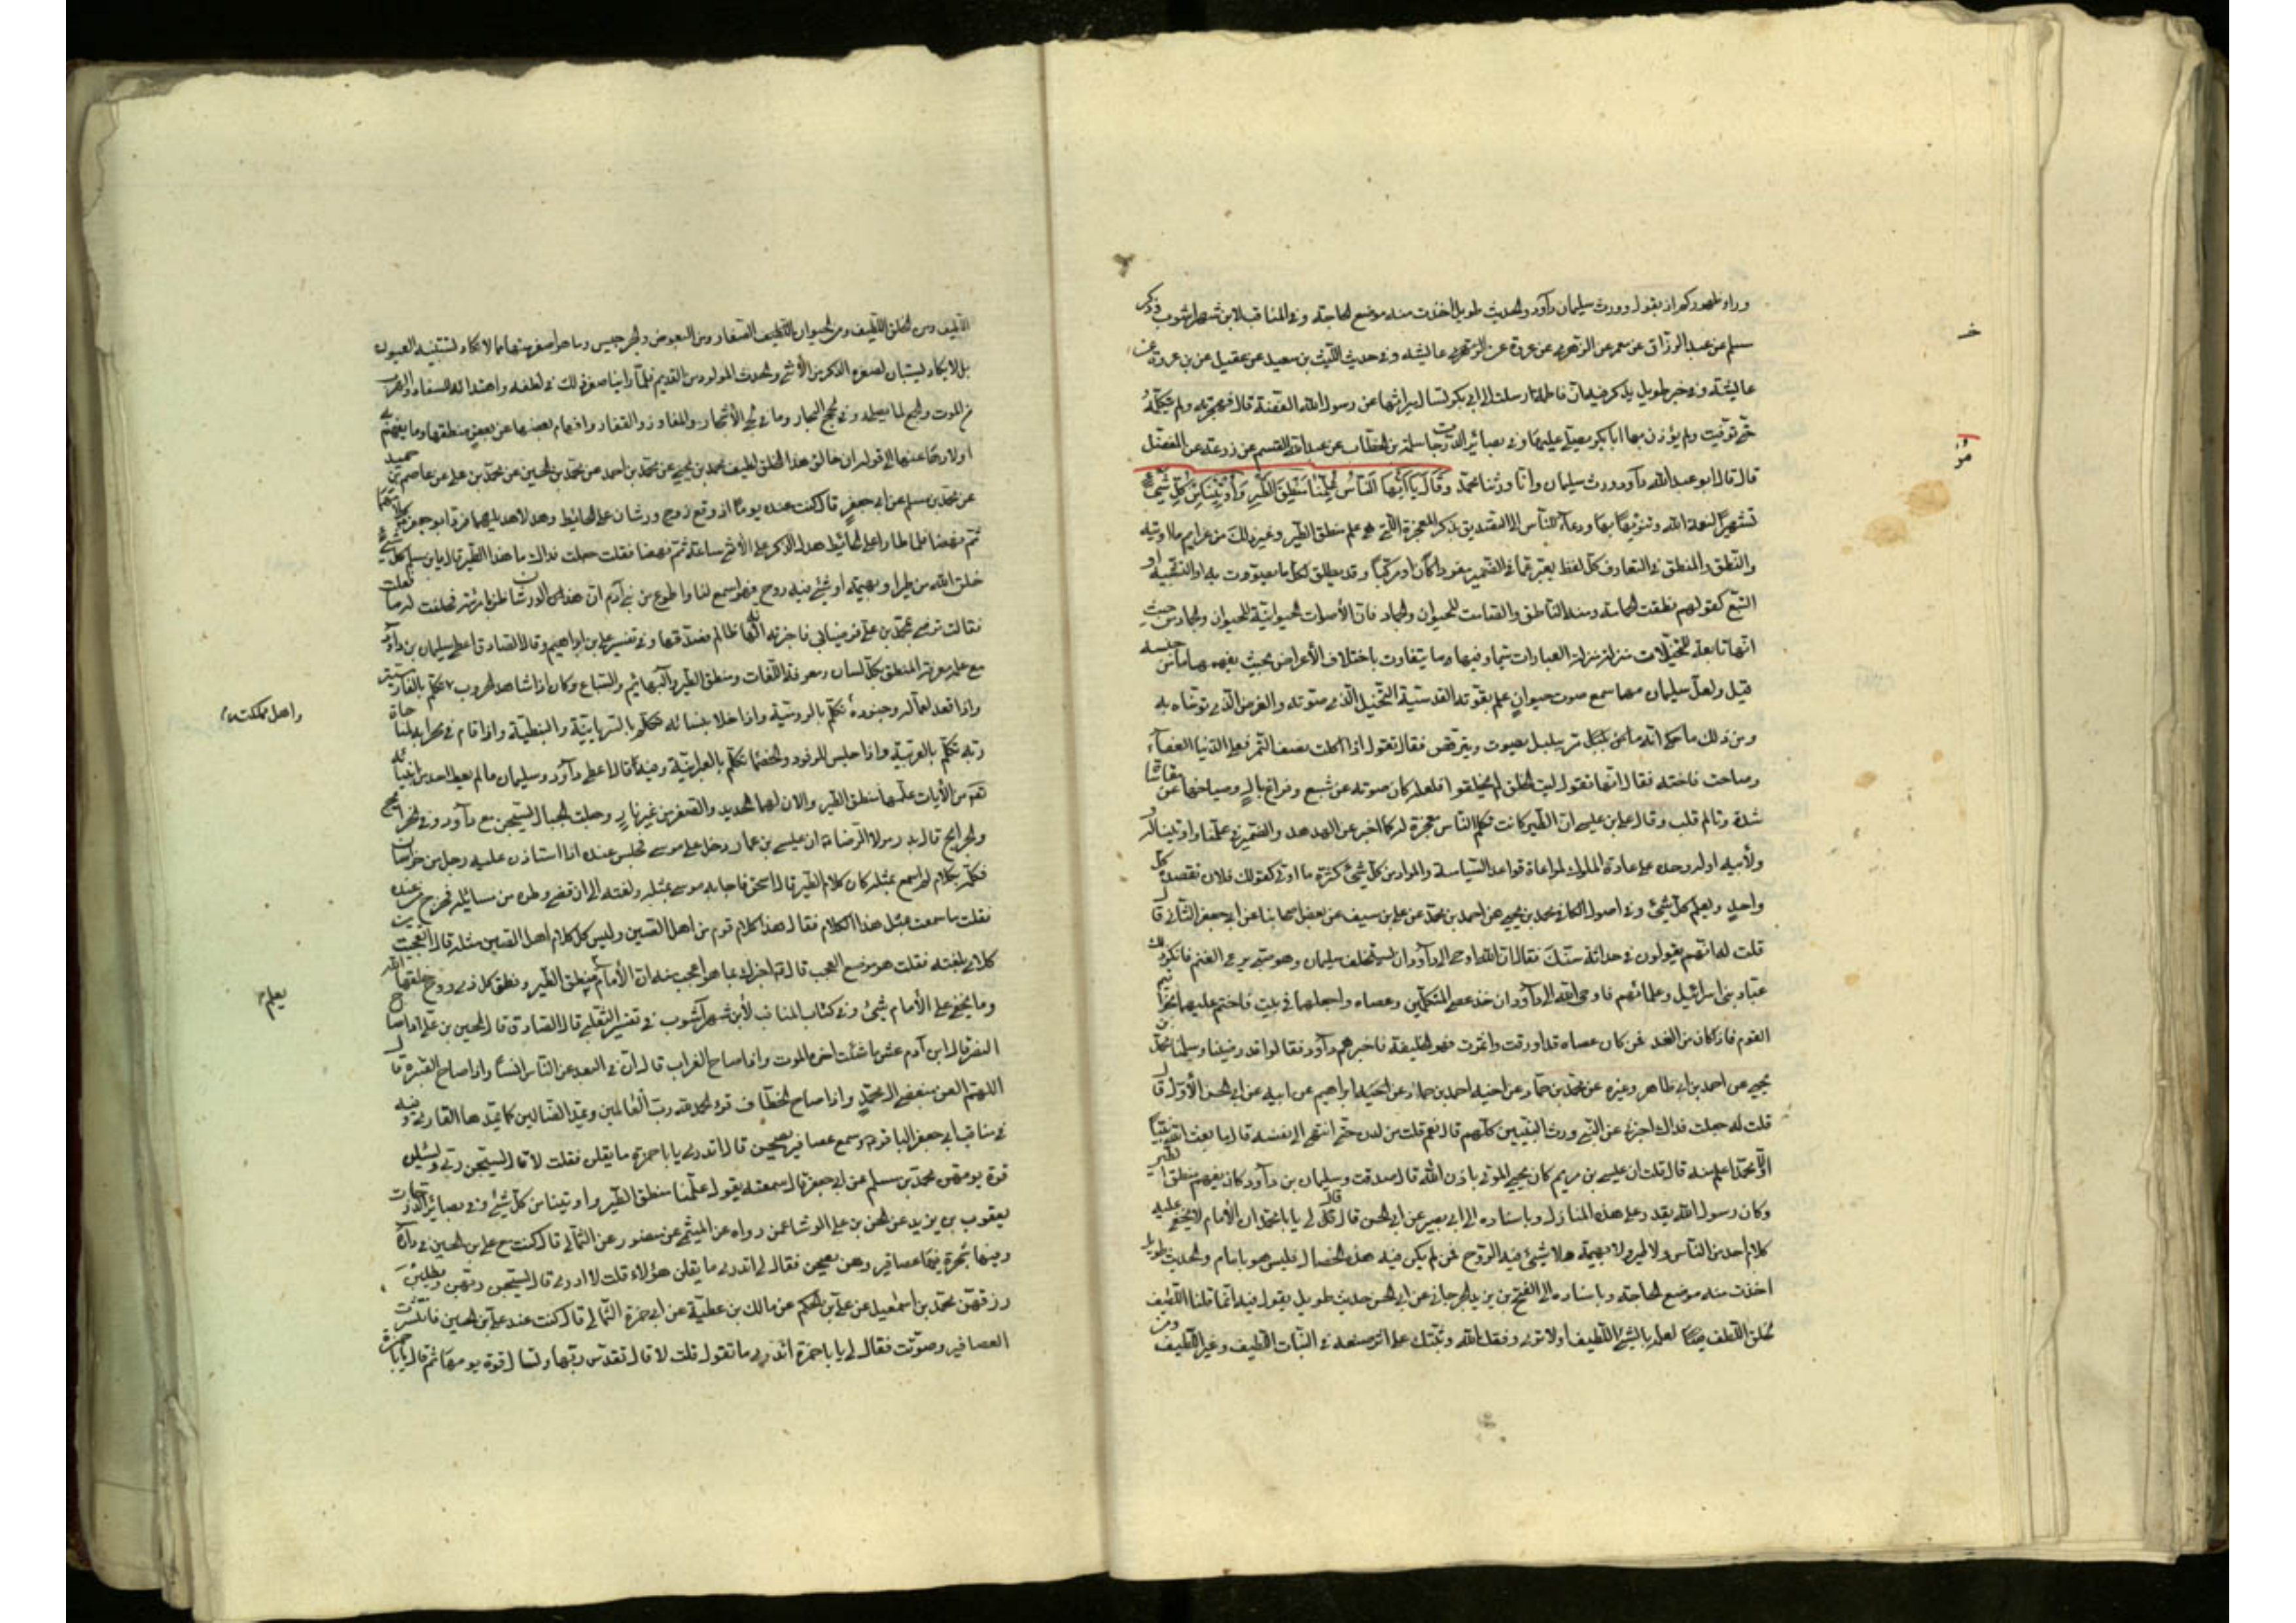 وراء ظهوركم اذ يقول وورث سليمان داود والحديث طويل اخذت منه موضع الحاجة وفي المناقب لابن شهراشوب وذكر
مسلم عن عبد الرزاق عن معمر عن الزهري عن عروة عن الزهري عن عايشة وفي حديث الليث بن سعيد عن عقيل عن بن عروة عن
عايشة وفي خبر طويل يذكر فيه ان فاطمة ارسلت الى ابي بكر تسال ميراثها عن رسول الله القصة قال فهجرته ولم تكلمه
حتى توفيت ولم يؤذن بها ابا بكر يصلي عليها وفي بصائر الدرجات سلمة بن الخطاب عن عبد الله القسم عن زرعة عن المفضل
قال قال ابو عبد الله داود ورث سليمان وانا ورثنا محمد وَقَالَ يَا أَيُّهَا النَّاسُ عُلِّمْنَا مَنْطِقَ الطَّيْرِ وَأُوتِينَا مِنْ كُلِّ شَيْءٍ
تشهيرا لنعمة الله وتنويها بها ودعاء للناس الى التصديق بذكر المعجزة التي هي علم منطق الطير وغير ذلك من عزايم ما اوتيه
والنطق والمنطق في التعارف كل لفظ يعبر عما في الضمير مفردا كان او مركبا وقد يطلق لكل ما يصوت به او التشبيه او
التبع كقولهم نطقت الحمامة ومنه الناطق والصامت للحيوان والجماد فان الاصوات الحيوانية للحيوان والجماد من حيث
انها تابعة للتخيلات منزلة منزلة العبارات سيما وفيها وما يتفاوت باختلاف الاغراض بحيث يفهمها ما من جنسه
قيل ولعل سليمان مهما سمع صوت حيوان علم بقوته القدسية التخيل الذي صوته والغرض الذي توخاه به
ومن ذلك ما حكي انه مر على بلبل يصوت ويترقص فقال تقول اذا اكلت نصف التمر فعلى الدنيا العفاء
وصاحت فاخته فقال انها تقول ليت الخلق لم يخلقوا فلعله كان صوته عن شبع وفراغ بال وصياحها عن مقاساة
شدة وتالم قلب وقال علي بن عيسى ان الطير كانت تكلم الناس معجزة له كما اخبر عن الهدهد والضمير في علمنا واوتينا له
ولابيه او له وحده على عادة الملوك لمراعاة قواعد السياسة والمراد من كل شيء كثرة ما اوتي كقولك فلان يقصده كل
واحد ويعلم كل شيء وفي اصول الكافي محمد بن يحيى عن احمد بن محمد عن علي بن سيف عن بعض اصحابنا عن ابي جعفر الثاني قال
قلت له انهم يقولون في حداثة سنك فقال ان الله اوحى الى داود ان يستخلف سليمان وهو صبي يرعى الغنم فانكر ذلك
عباد بني اسرائيل وعلمائهم فاوحى الله الى داود ان خذ عصي المتكلمين وعصاه واجعلها في بيت فاختم عليها بخواتيم
القوم فاذا كان من الغد فمن كان عصاه قد اورقت واثمرت فهو الخليفة فاخبرهم داود فقالوا قد رضينا وسلمنا محمد بن
يحيى عن احمد بن ابي ظاهر وغيره عن محمد بن حماد عن اخيه احمد بن حماد عن ابراهيم عن ابيه عن ابي الحسن الاول قال
قلت له جعلت فداك اخبرني عن النبي ورث النبيين كلهم قال نعم قلت من لدن حتى انتهى الى نفسه قال ما بعث الله نبيا
الا ومحمد اعلم منه قال قلت ان عيسى بن مريم كان يحيي الموتى باذن الله قال صدقت وسليمان بن داود كان يفهم منطق الطير
وكان رسول الله يقدر على هذه المنازل وباسناده الى ابي بصير عن ابي الحسن قال قال لي يا با محمد ان الامام لا يخفى عليه
كلام احد من الناس ولا طير ولا بهيمة ولا شيء فيه الروح فمن لم يكن فيه هذه الخصال فليس هو بامام والحديث طويل
اخذت منه موضع الحاجة وباسناده الى الفتح بن يزيد الجرجاني عن ابي الحسن حديث طويل يقول فيه انما قلنا اللطيف
للخلق اللطيف لعلمه بالشيء اللطيف اولا ترى وفقك الله وثبتك على اثر صنعه في النبات اللطيف وغير اللطيف ومن
خ
مز
اللطيف ومن الخلق اللطيف ومن الحيوان اللطيف الصغار ومن البعوض والجرجيس وما هو اصغر منها ما لا يكاد تستبينه العيون
بل لا يكاد يستبان لصغره الذكر من الانثى والحدث المولود من القديم فلما راينا صغر ذلك في لطفه واهتدائه للسفاد والهرب
من الموت والجمع لما يصلحه وفي لجج البحار وما في لحي الاشجار والمفاوز والقفار وافهام بعضها عن بعض منطقها وما يفهم
اولادها عنها الى قوله ان خالق هذا الخلق لطيف محمد بن يحيى عن محمد بن احمد عن محمد بن الحسين عن محمد بن علي عن عاصم بن حميد
عن محمد بن مسلم عن ابي جعفر قال كنت عنده يوما اذ وقع زوج ورشان على الحائط وهدلا هديلهما فرد ابو جعفر كلامهما
ثم نهضا فلما طارا على الحائط هدل الذكر على الانثى ساعة ثم نهضا فقلت جعلت فداك ما هذا الطير قال يا بن مسلم كل شيء
خلق الله من طير او بهيمة او شيء فيه روح فهو اسمع لنا واطوع من بني آدم ان هذا الورشان ظن بامرئته فحلفت له ما فعلت
فقالت ترضى بمحمد بن علي فرضيا بي فاخبرته انه لها ظالم فصدقها وفي تفسير علي بن ابراهيم وقال الصادق اعطي سليمان بن داود
مع علمه معرفة المنطق بكل لسان ومعرفة اللغات ومنطق الطير والبهائم والسباع وكان اذا شاهد الحروب تكلم بالفارسية
واذا قعد لعماله وجنوده تكلم بالرومية واذا خلا بنسائه تكلم بالسريانية والنبطية واذا قام في محرابه لمناجاة
ربه تكلم بالعربية واذا جلس للوفود والخصماء تكلم بالعبرانية وفيه قال اعطي داود وسليمان ما لم يعط احد من انبياء الله
من الايات علمهما منطق الطير والان لهما الحديد والصفر من غير نار وجعلت الجبال يسبحن مع داود وفي الخرائج
والجرائح قال بدر مولا الرضا ان عيسى بن عمار دخل على موسى فجلس عنده اذا استاذن عليه رجل من خراسان
فكلمه بكلام لم اسمع بمثله كان كلام الطير قال اسحق فاجابه موسى بمثله ولغته الى ان قضى وطره من مسائله فخرج من عنده
فقلت ما سمعت بمثل هذا الكلام فقال هذا كلام قوم من اهل الصين وليس كل كلام اهل الصين مثله قال اتعجب من
كلامي بلغته فقلت هو موضع العجب قال اخبرك بما هو اعجب منه ان الامام يعلم منطق الطير ونطق كل ذي روح خلقها الله
وما يخفى على الامام شيء وفي كتاب المناقب لابن شهرآشوب في تفسير الثعلبي قال الصادق قال الحسين بن علي اذا صاح
النسر قال ابن آدم عش ما شئت اخره الموت واذا صاح الغراب قال ان في البعد عن الناس انسا واذا صاح القنبرة قال
اللهم العن مبغضي ال محمد واذا صاح الخطاف قرء الحمد لله رب العالمين ويمد الضالين كما يمدها القاري وفيه
في مناقب ابي جعفر الباقر وسمع عصافير يصحن قال اتدري يا با حمزة ما يقلن فقلت لا قال يسبحن ربي ويسئلن
قوت يومهن محمد بن مسلم عن ابي جعفر قال سمعته يقول علمنا منطق الطير واوتينا من كل شيء وفي بصائر الدرجات
يعقوب بن يزيد عن الحسن بن علي الوشا عمن رواه عن الميثمي عن منصور عن الثمالي قال كنت مع علي بن الحسين في داره
وفيها شجرة فيها عصافير وهن يصحن فقال لي اتدري ما يقلن هؤلاء قلت لا ادري قال يسبحن ربهن ويطلبن
رزقهن محمد بن اسمعيل عن علي بن الحكم عن مالك بن عطية عن ابي حمزة الثمالي قال كنت عند علي بن الحسين فانتشرت
العصافير وصوتت فقال لي يا با حمزة اتدري ما تقول قلت لا قال تقدس ربها وتسال قوت يومها ثم قال يا با حمزة
واهل مملكته
يعلم